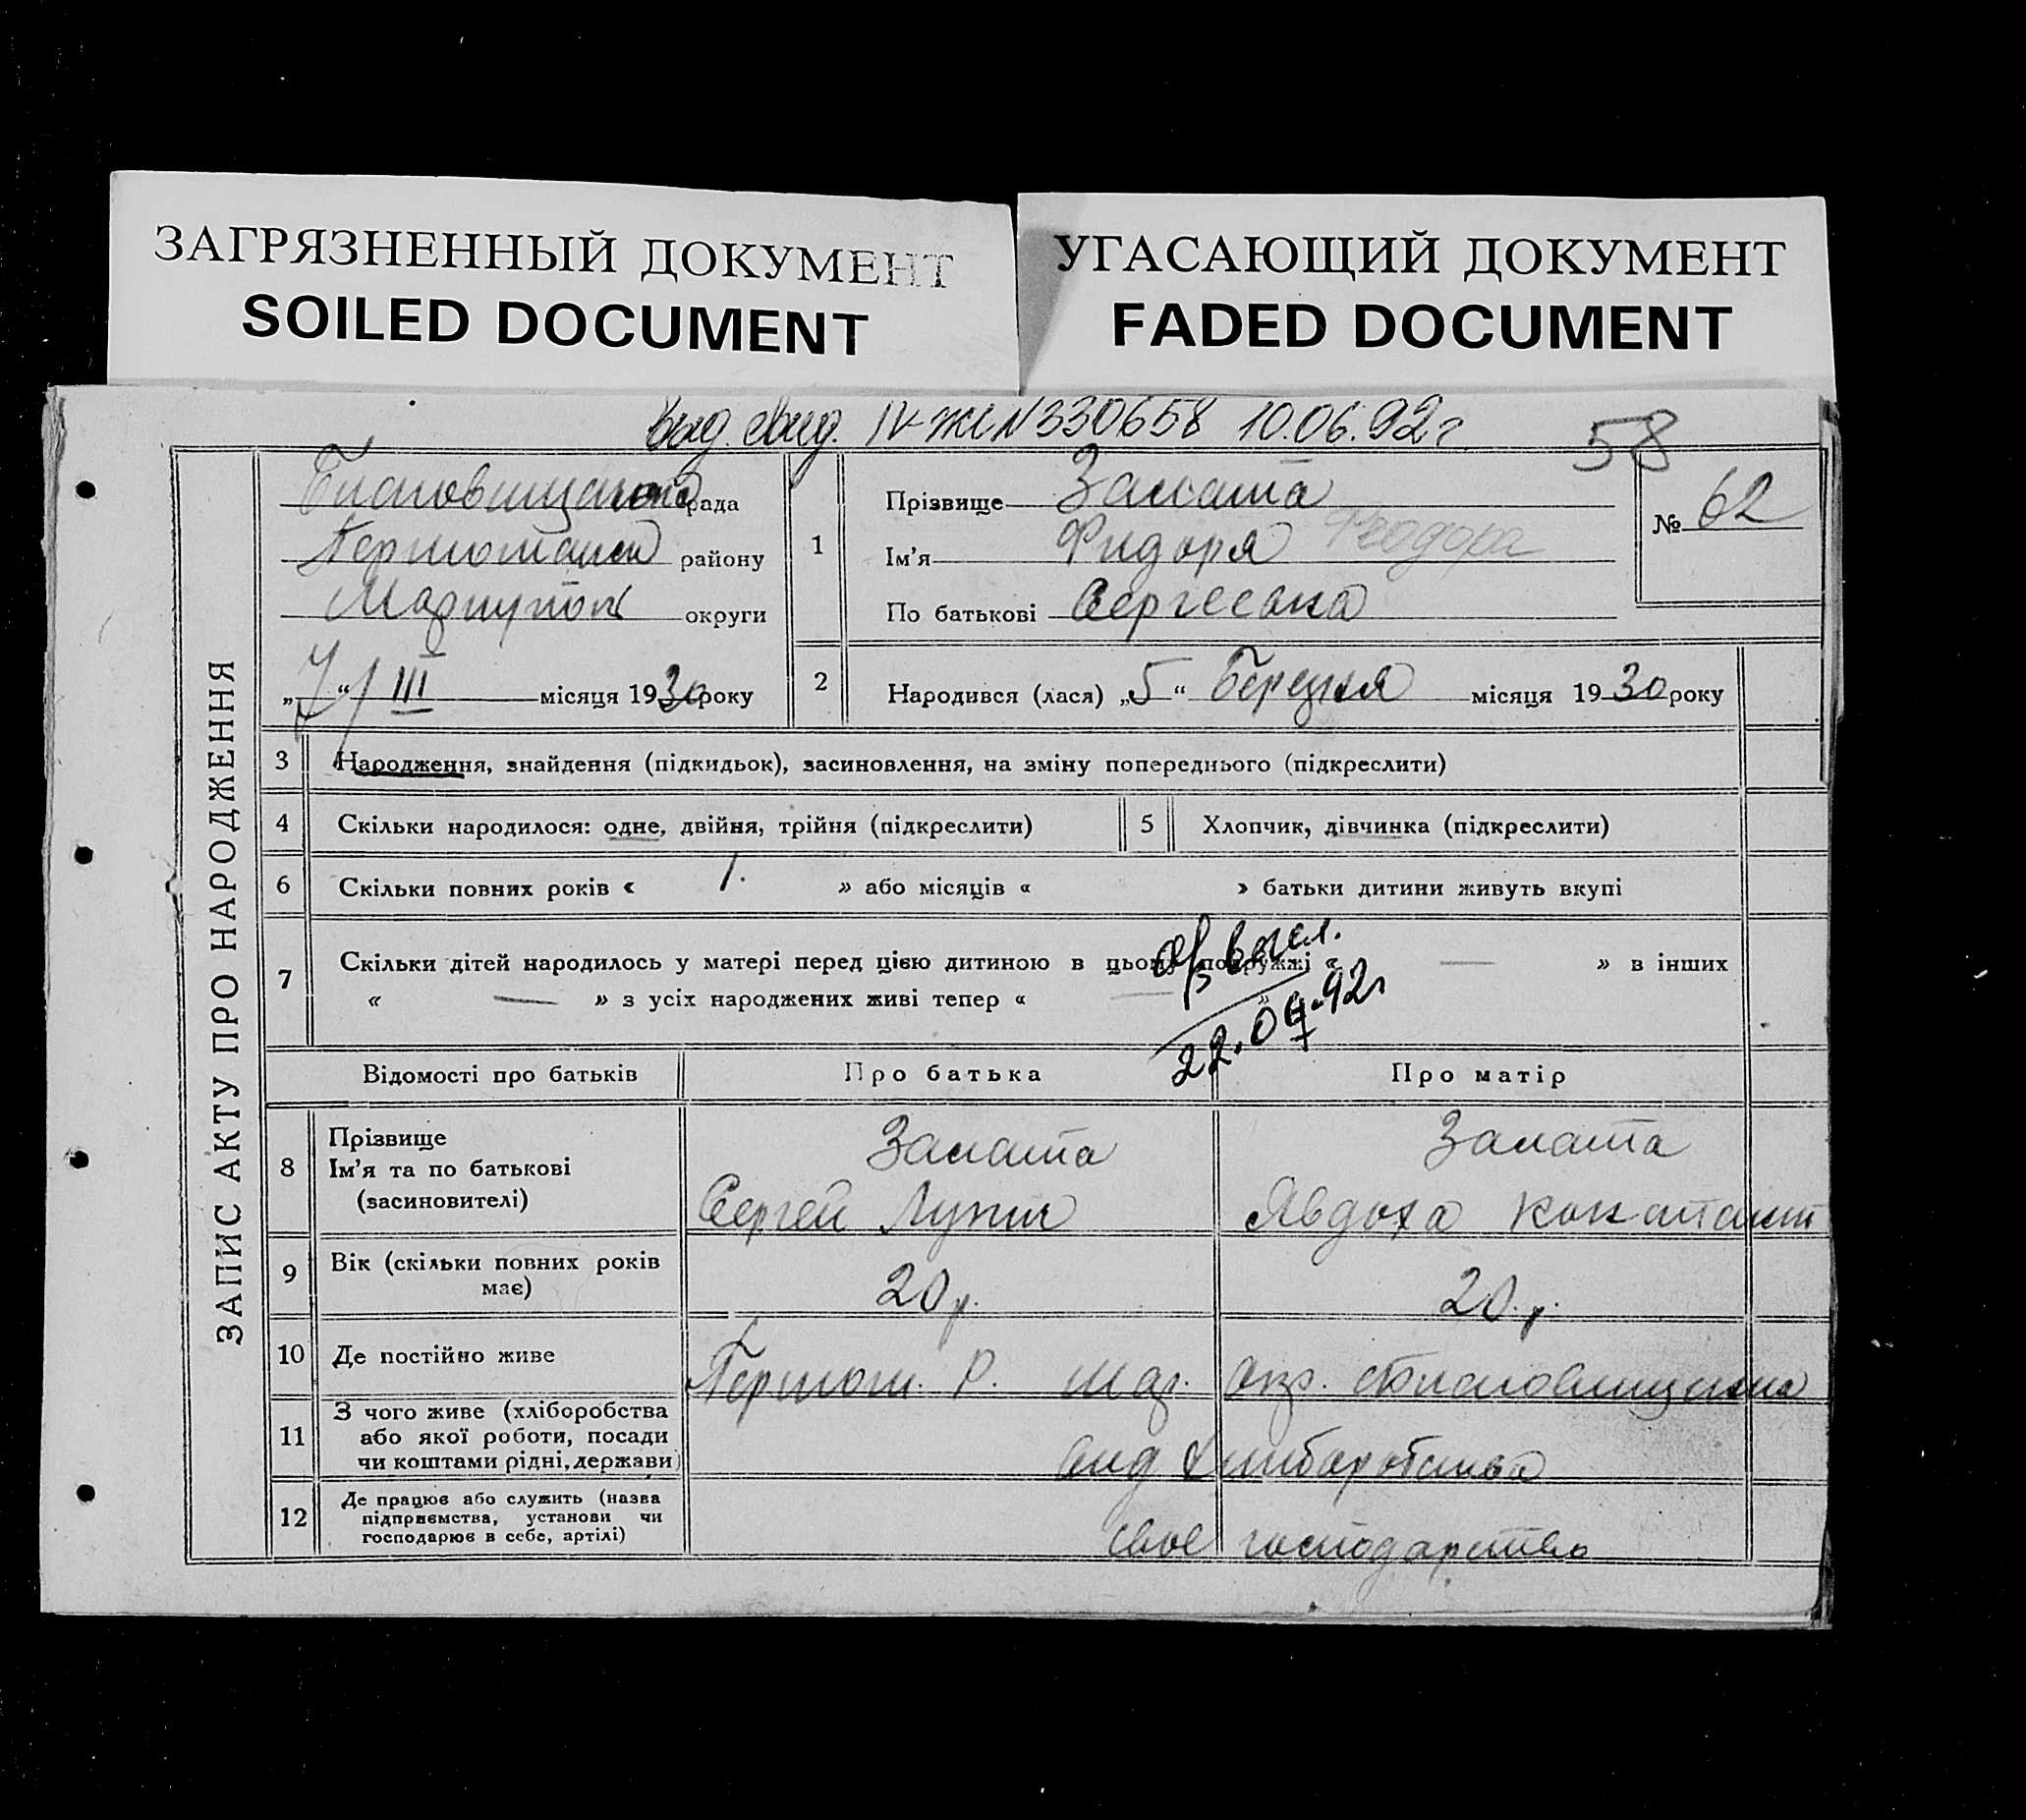 ЗАГРЯЗНЕННЫЙ ДОКУМЕНТ
SOILED DOCUMENT
УГАСАЮЩИЙ ДОКУМЕНТ
FADED DOCUMENT
выд. свид. IV-ЖС N 330658 10.06.92 г
58
ЗАПИС АКТУ ПРО НАРОДЖЕННЯ
рада
району
Маріупол округи
„7“ III місяця 1930 року
1
Прізвище Залата
Ім'я Фидоря Феодора
По батькові Сергеевна
№ 62
2 Народився (лася) „5“ Березня місяця 1930 року
3 Народження, знайдення (підкидьок), засиновлення, на зміну попереднього (підкреслити)
4 Скільки народилося: одне, двійня, трійня (підкреслити)
5 Хлопчик, дівчинка (підкреслити)
6 Скільки повних років « 1. » або місяців « » батьки дитини живуть вкупі
7 Скільки дітей народилось у матері перед цією дитиною в цьому подружжі « — » в інших
« — » з усіх народжених живі тепер « — »
высл.
22.04.92г
Відомості про батьків
Про батька
Про матір
8 Прізвище
Ім'я та по батькові
(засиновителі)
Залата
Сергей Лукич
Залата
Явдоха Констант
9 Вік (скільки повних років
має)
20 р.
20. р.
10 Де постійно живе
Р. Мар. Окр.
11 З чого живе (хліборобства
або якої роботи, посади
чи коштами рідні, держави)
від хліборобства
12 Де працює або служить (назва
підприємства, установи чи
господарює в себе, артілі)
своє господарство